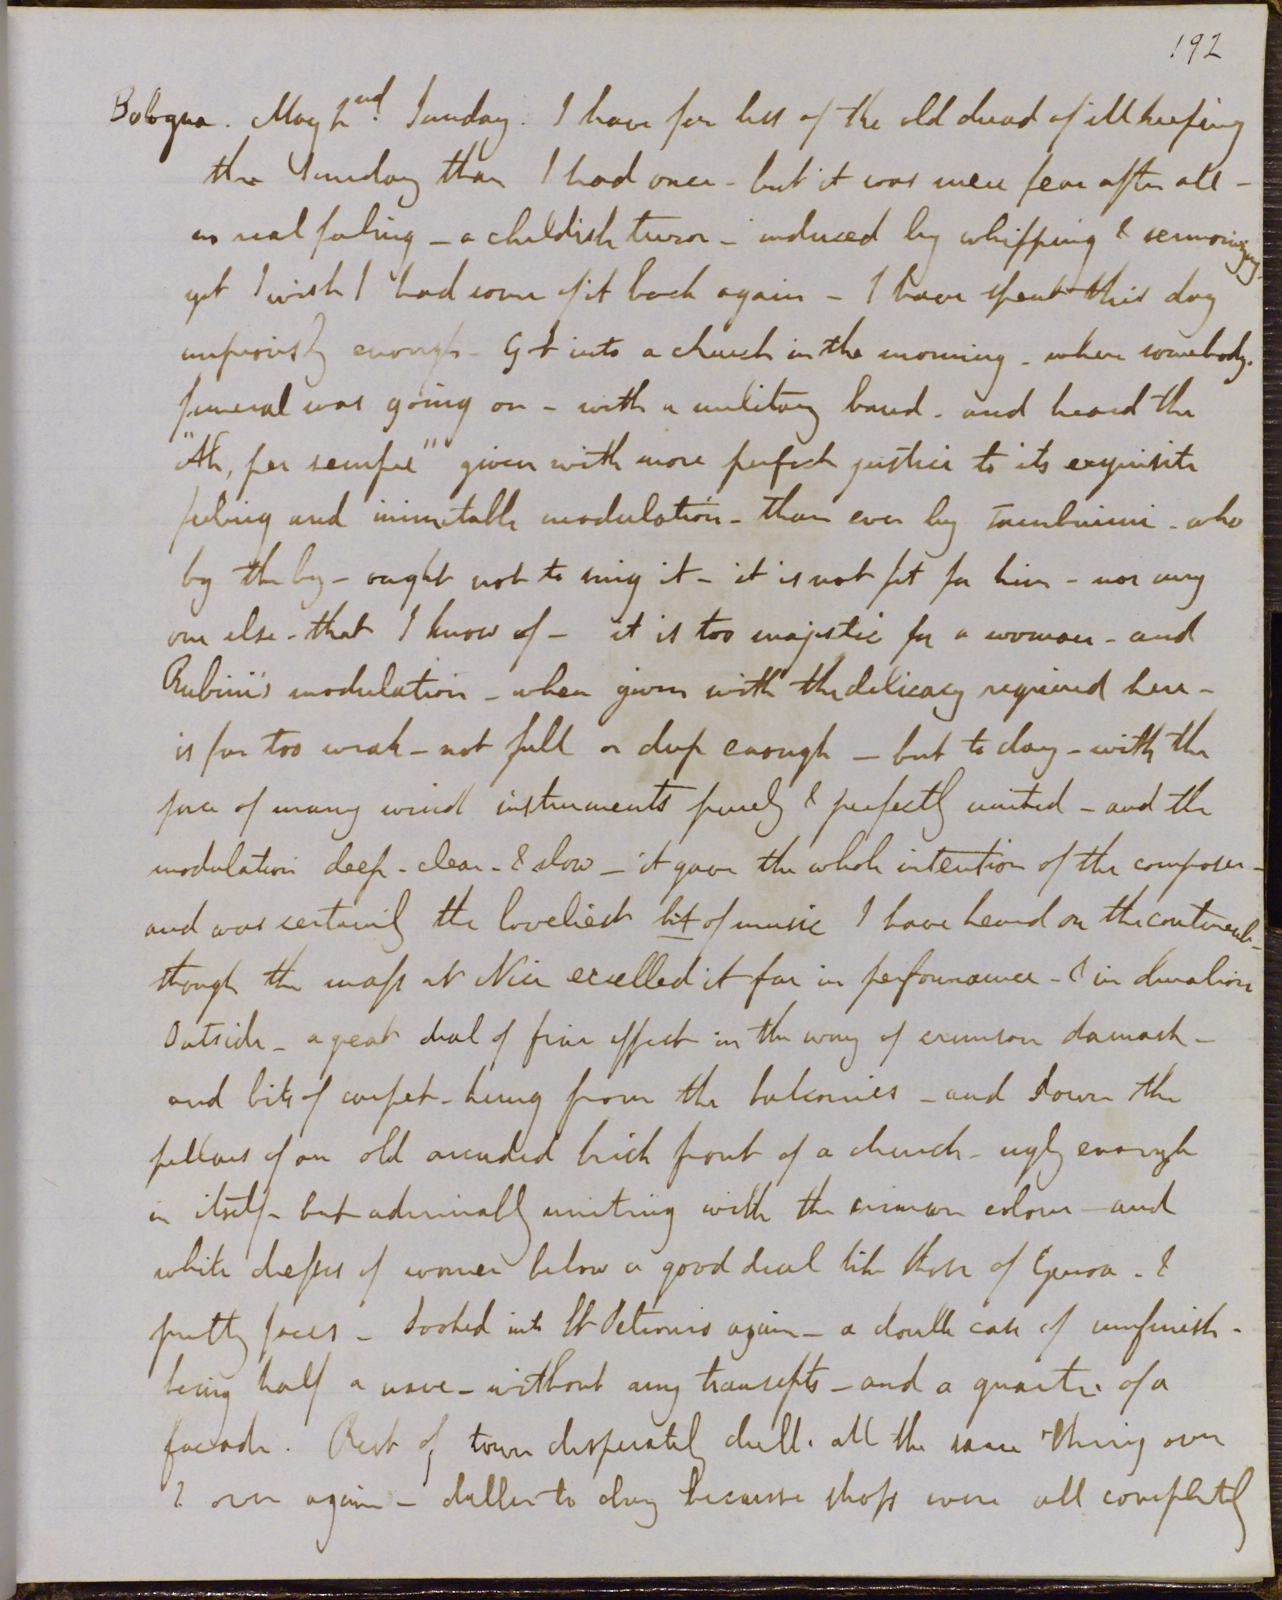 192
Bologna. May 2nd. Sunday. I have far less of the old dread of ill keeping
the Sunday than I had once - but it was mere fear after all -
no real feeling - a childish terror - induced by whipping & sermonizing -
yet I wish I had some of it back again - I have spent this day
impiously enough - Got into a church in the morning - where somebody's
funeral was going on - with a military band - and heard the
"Ah, per sempre" given with more perfect justice to its exquisite
feeling and inimitable modulation - than ever by Tamburini - who
by the by - ought not to sing it - it is not fit for him - nor any
one else - that I know of - it is too majestic for a woman - and
Rubini's modulation - when given with the delicacy required here -
is far too weak - not full or deep enough - but to day - with the
force of many wind instruments purely & perfectly united - and the
modulation deep - clear - & slow - it gave the whole intention of the composer -
and was certainly the loveliest bit of music I have heard on the continent -
though the mass at Nice excelled it far in performance - & in duration
Outside - a great deal of fine effect in the way of crimson damask -
and bits of carpet - hung from the balconies - and down the
pillars of an old arcaded brick front of a church - ugly enough
in itself - but admirably uniting with the crimson colour - and
white dresses of women below a good deal like those of Genoa - &
pretty faces - Looked into St Petronio again - a double case of unfinish -
being half a nave - without any transepts - and a quarter of a
facade. Rest of town desperately dull. all the same thing over
& over again - duller to day because shops were all completely